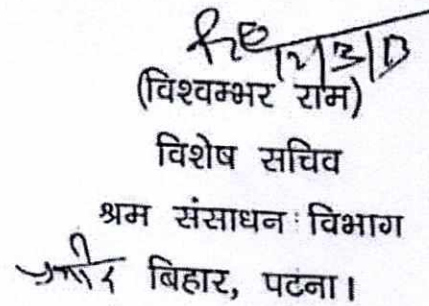 12/3/13
(विश्वम्भर राम)
विशेष सचिव
श्रम संसाधन विभाग
बिहार, पटना।